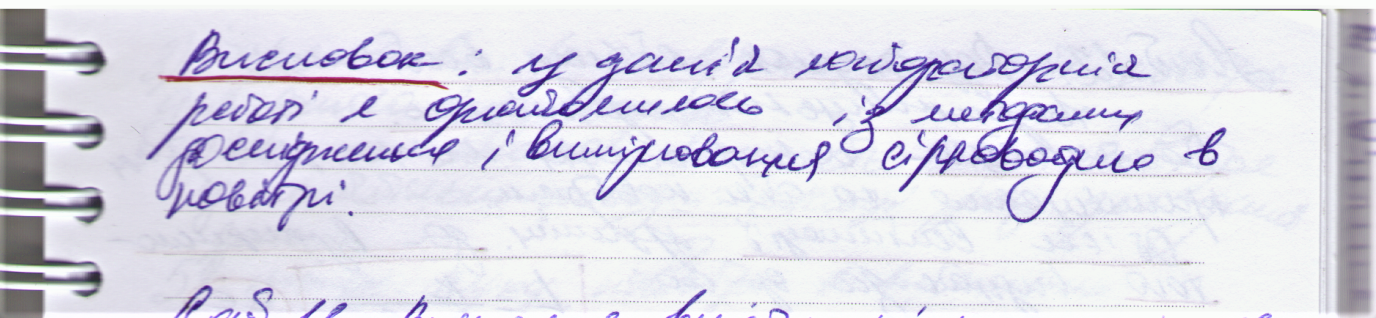 Висновок: у даній лабораторній
роботі я ознайомилась із методами
дослідження і вимірювання сірководню в
повітрі.